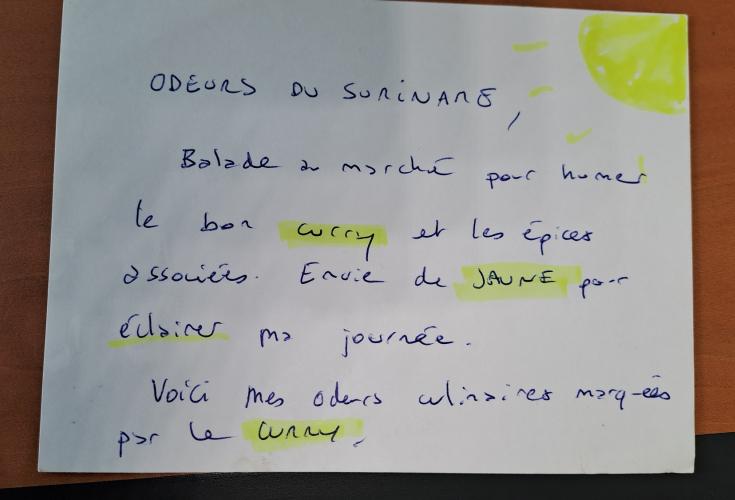 ODEURS DU SURINAME,
Balade au marché pour humer
le bon curry et les épices
associées. Envie de JAUNE pour
éclairer ma journée.
Voici mes odeurs culinaires marquées
par le CURRY.